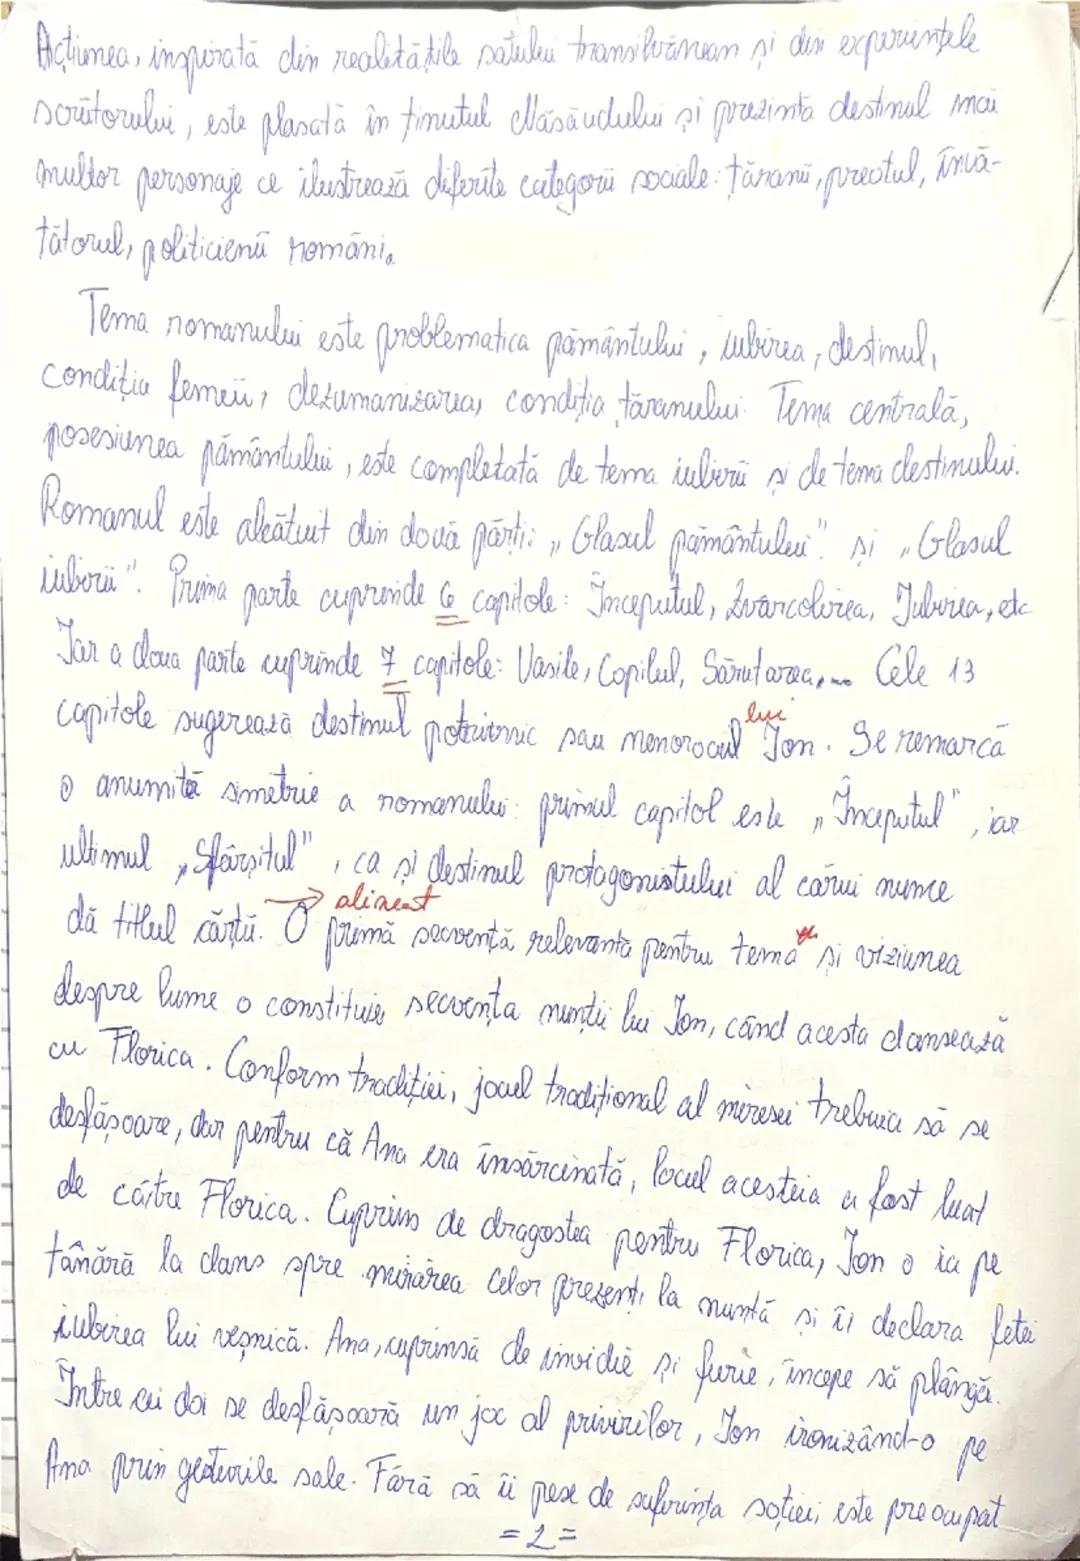 Acțiunea, inspirată din realitățile satului transilvănean și din experiențele
scriitorului, este plasată în ținutul Năsăudului și prezintă destinul mai
multor personaje ce ilustrează diferite categorii sociale: țăranii, preotul, învă-
țătorul, politicienii români.
Tema romanului este problematica pământului, iubirea, destinul,
condiția femeii, dezumanizarea, condiția țăranului. Tema centrală,
posesiunea pământului, este completată de tema iubirii și de tema destinului.
Romanul este alcătuit din două părți: „Glasul pământului" și „Glasul
iubirii". Prima parte cuprinde 6 capitole: Începutul, Zvârcolirea, Iubirea, etc
Iar a doua parte cuprinde 7 capitole: Vasile, Copilul, Sărutarea,... Cele 13
lui
capitole sugerează destinul potrivnic sau nenorocul Ion. Se remarcă
o anumită simetrie a romanului: primul capitol este „Începutul", iar
ultimul „Sfârșitul", ca și destinul protagonistului al cărui nume
→ alineat
dă titlul cărții. O primă secvență relevantă pentru temă și viziunea
despre lume o constituie secvența nunții lui Ion, când acesta dansează
cu Florica. Conform tradiției, jocul tradițional al miresei trebuia să se
desfășoare, dar pentru că Ana era însărcinată, locul acesteia a fost luat
de către Florica. Cuprins de dragostea pentru Florica, Ion o ia pe
tânără la dans spre mirarea celor prezenți la nuntă și îi declara fetei
iubirea lui veșnică. Ana, cuprinsă de invidie și furie, începe să plângă.
Între cei doi se desfășoară un joc al privirilor, Ion ironizând-o pe
Ana prin gesturile sale. Fără să îi pese de suferința soției, este preocupat
=2=